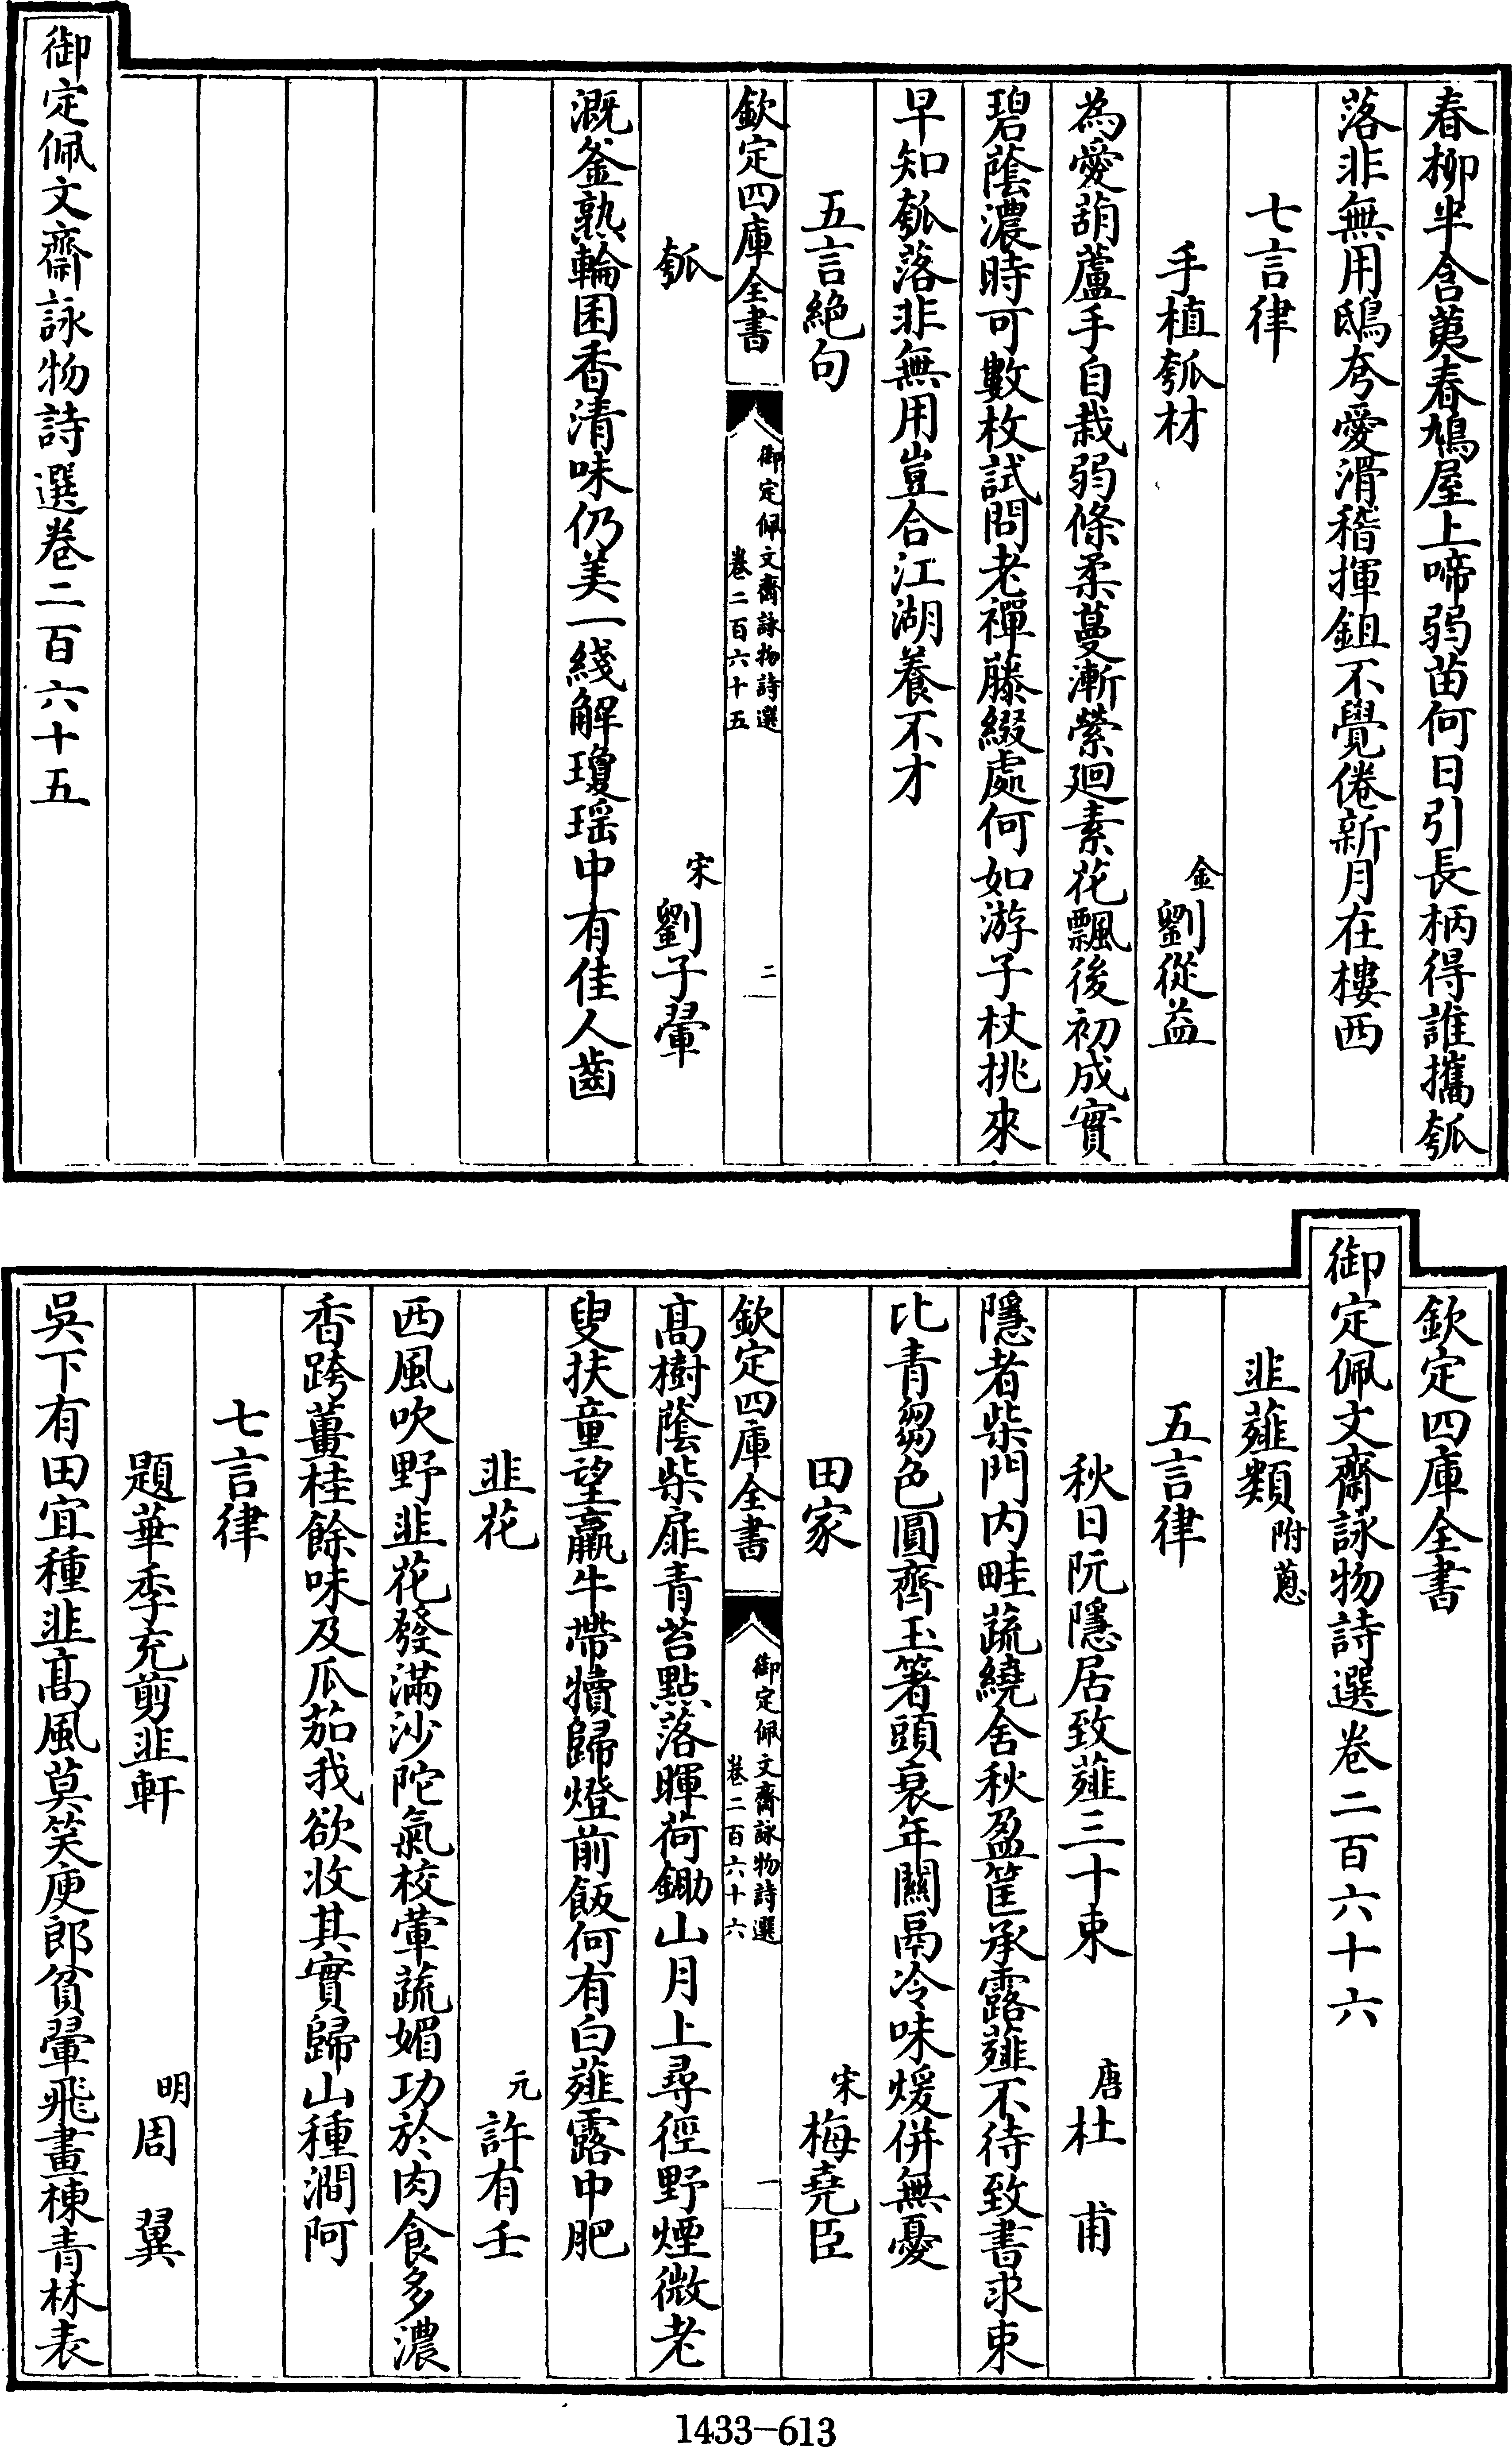 春柳半含荑春鳩屋上啼弱苗何日引長柄得誰攜瓠
落非無用鴟夸愛滑稽揮鉏不覺倦新月在樓西
七言律
手植瓠材
金
劉從益
為愛葫蘆手自栽弱條柔蔓漸縈廻素花飄後初成實
碧蔭濃時可數枚試問老禪藤綴處何如游子杖挑來
早知瓠落非無用豈合江湖養不才
五言絕句
欽定四庫全書
御定佩文齋詠物詩選
卷二百六十五
二
瓠
宋
劉子翬
溉釜熟輪囷香清味仍美一綫解瓊瑤中有佳人齒
御定佩文齋詠物詩選卷二百六十五
欽定四庫全書
御定佩文齋詠物詩選卷二百六十六
韭薤類
附蔥
五言律
秋日阮隱居致薤三十束
唐
杜甫
隱者柴門內畦蔬繞舍秋盈筐承露薤不待致書求束
比青芻色圓齊玉箸頭衰年關鬲冷味煖併無憂
田家
宋
梅堯臣
欽定四庫全書
御定佩文齋詠物詩選
卷二百六十六
一
髙樹蔭柴扉青苔點落暉荷鋤山月上尋徑野煙微老
叟扶童望羸牛帶犢歸燈前飯何有白薤露中肥
韭花
元
許有壬
西風吹野韭花發滿沙陀氣校葷蔬媚功於肉食多濃
香跨薑桂餘味及瓜茄我欲收其實歸山種澗阿
七言律
題華季充剪韭軒
明
周翼
吳下有田宜種韭髙風莫笑庾郎貧翬飛畫棟青林表
1433-613